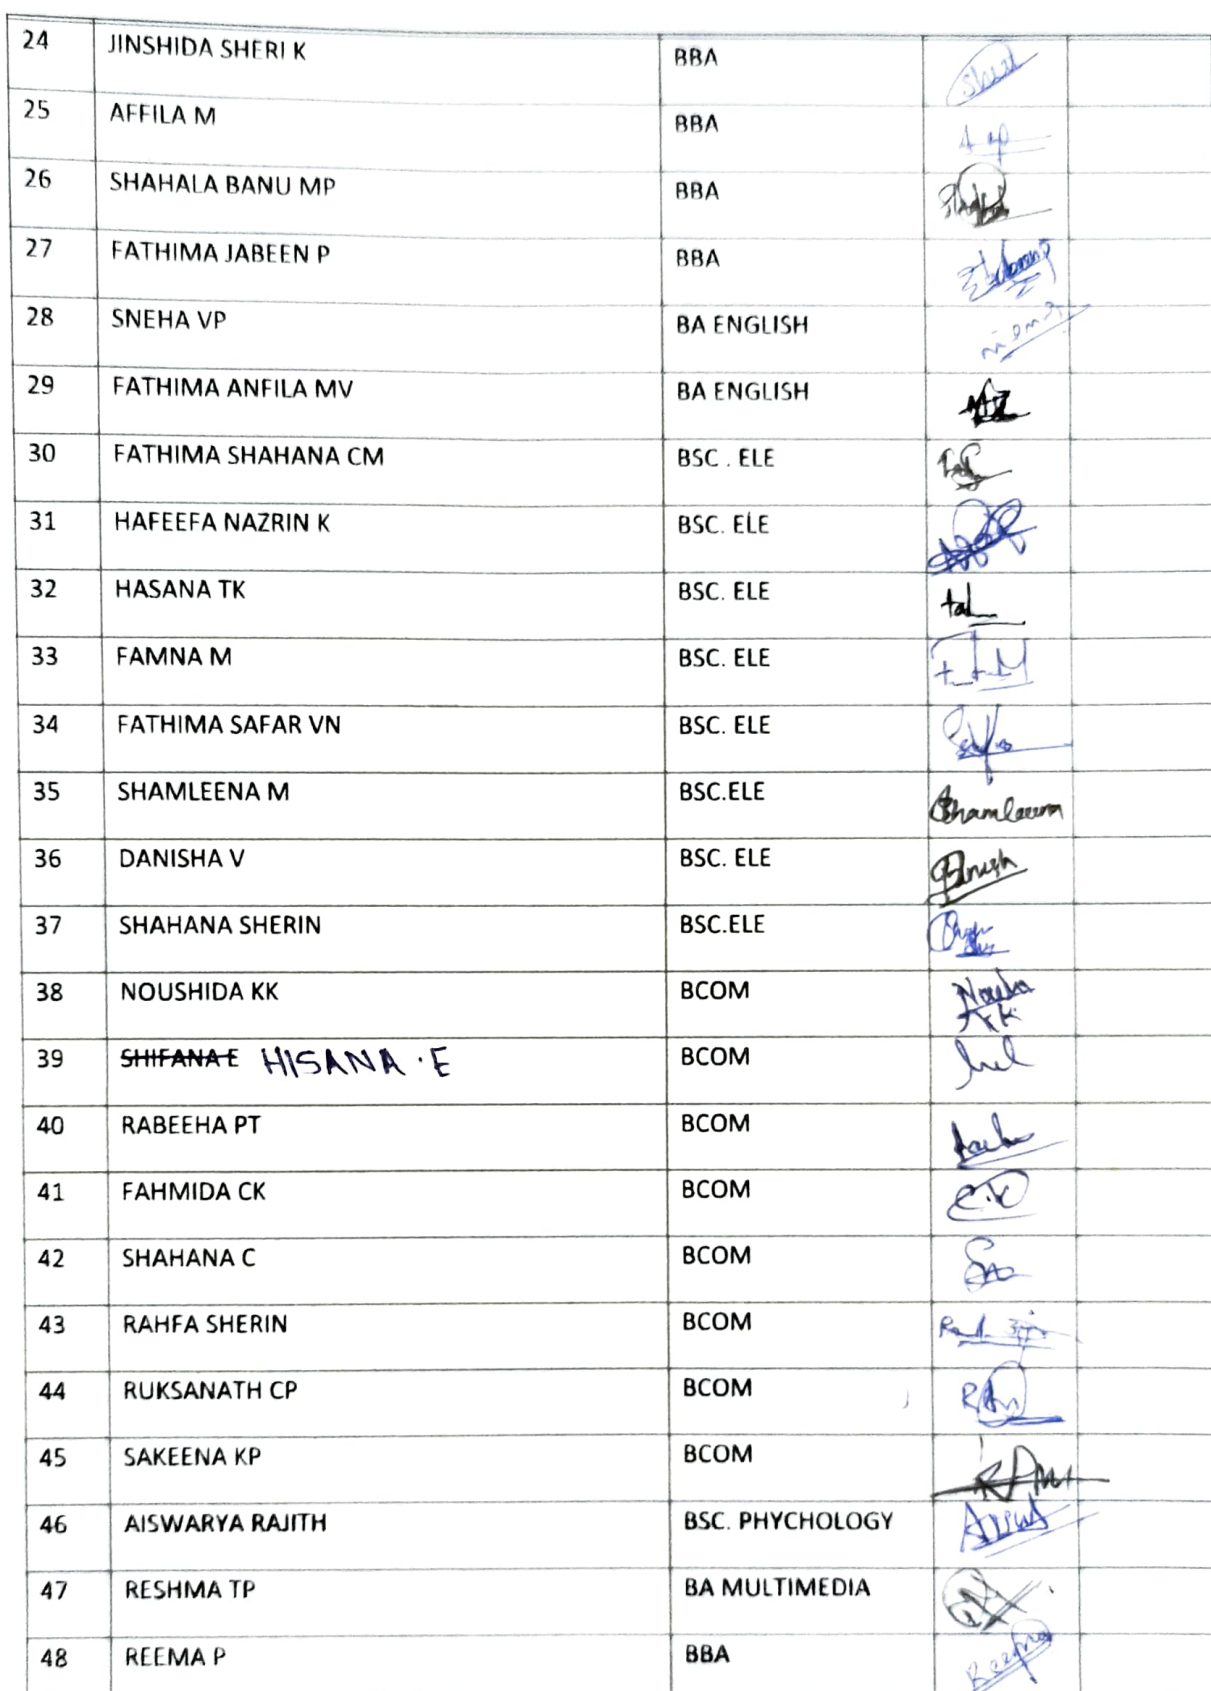 24 JINSHIDA SHERI K BBA
25 AFFILA M BBA
26 SHAHALA BANU MP BBA
27 FATHIMA JABEEN P BBA
28 SNEHA VP BA ENGLISH
29 FATHIMA ANFILA MV BA ENGLISH
30 FATHIMA SHAHANA CM BSC . ELE
31 HAFEEFA NAZRIN K BSC. ELE
32 HASANA TK BSC. ELE
33 FAMNA M BSC. ELE
34 FATHIMA SAFAR VN BSC. ELE
35 SHAMLEENA M BSC.ELE
36 DANISHA V BSC. ELE
37 SHAHANA SHERIN BSC.ELE
38 NOUSHIDA KK BCOM
39 SHIFANA E HISANA .E BCOM
40 RABEEHA PT BCOM
41 FAHMIDA CK BCOM
42 SHAHANA C BCOM
43 RAHFA SHERIN BCOM
44 RUKSANATH CP BCOM
45 SAKEENA KP BCOM
46 AISWARYA RAJITH BSC. PHYCHOLOGY
47 RESHMA TP BA MULTIMEDIA
48 REEMA P BBA